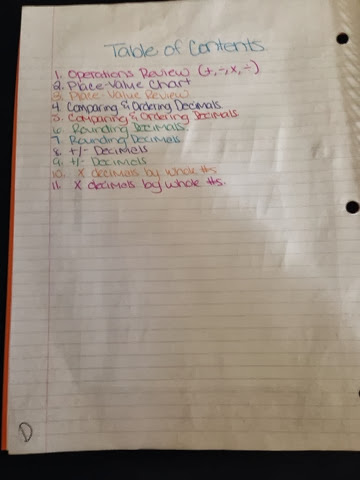 Table of Contents
1. Operations Review (+, -, x, ÷)
2. Place-Value Chart
3. Place-Value Review
4. Comparing & Ordering Decimals
5. Comparing & Ordering Decimals
6. Rounding Decimals
7. Rounding Decimals
8. +/- Decimals
9. +/- Decimals
10. X decimals by whole #s
11. X decimals by whole #s.
D